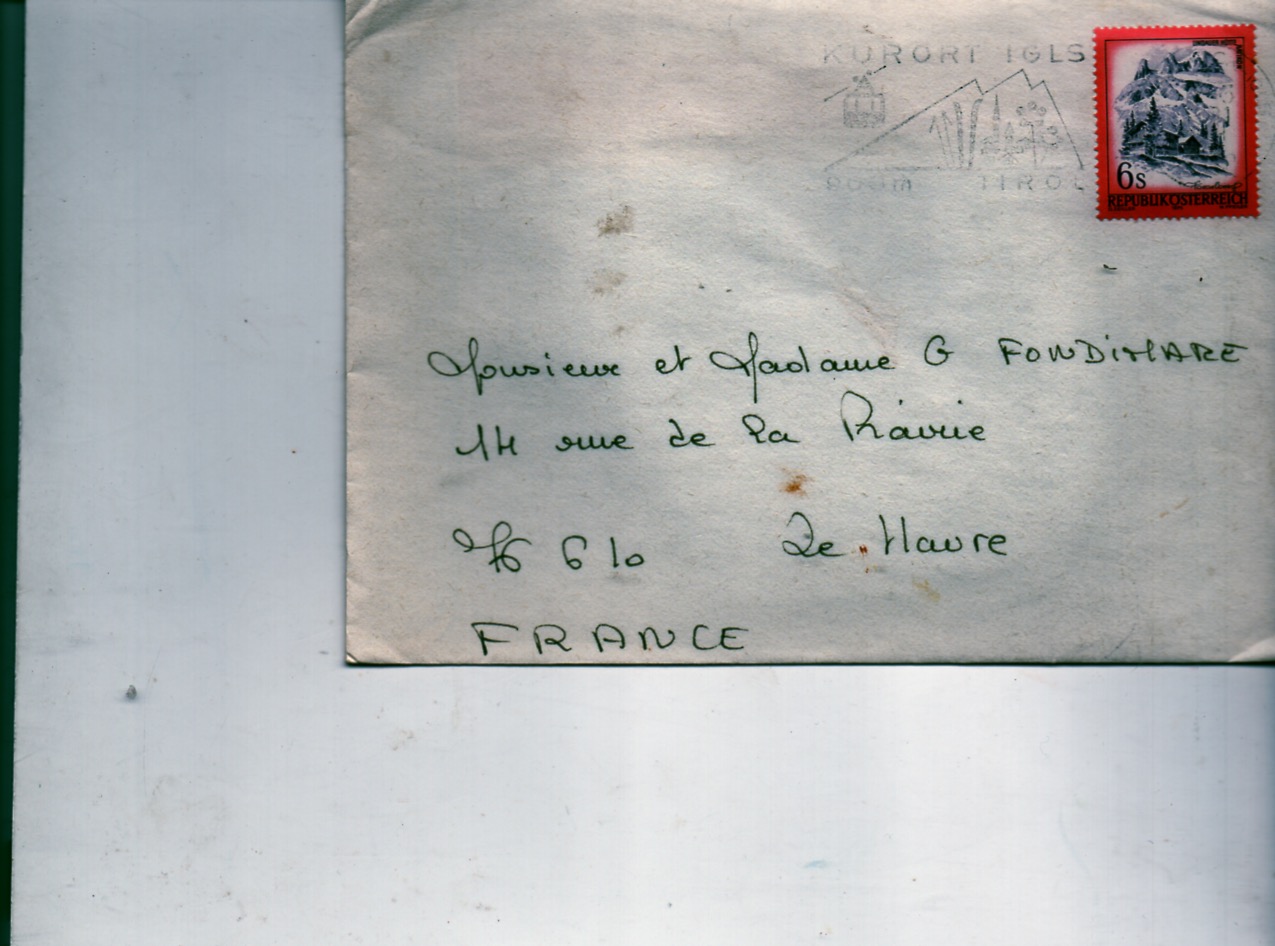 KURORT IGLS
900m TIROL
LINDAUER HÜTTE
6s
REPUBLIK ÖSTERREICH
Monsieur et Madame G FONDIMARE
14 rue de la
76 610 Le Havre
FRANCE